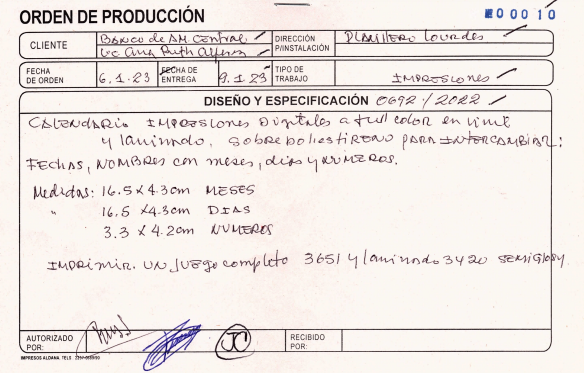 ORDEN DE PRODUCCIÓN
00010
CLIENTE
Banco de AM. Central
Lic Ana Ruth
DIRECCIÓN P/INSTALACIÓN
Plan Hero Lourdes
FECHA DE ORDEN
6.1.23
FECHA DE ENTREGA
9.1.23
TIPO DE TRABAJO
IMPRESIONES
DISEÑO Y ESPECIFICACIÓN 0692/2022
CALENDARIO IMPRESIONES DIGITALES a full color en vinil
y laminado, sobre poliestireno PARA INTERCAMBIAR:
FECHAS, NOMBRES con meses, días y NUMEROS.
Medidas: 16.5 x 4.3 cm MESES
" 16.5 x 4.3 cm DIAS
3.3 x 4.2 cm NUMEROS
IMPRIMIR. UN JUEGO completo 3651 y laminado 3420 SEMIGLOSS
AUTORIZADO POR:
JC
RECIBIDO POR:
IMPRESOS ALDANA TELS